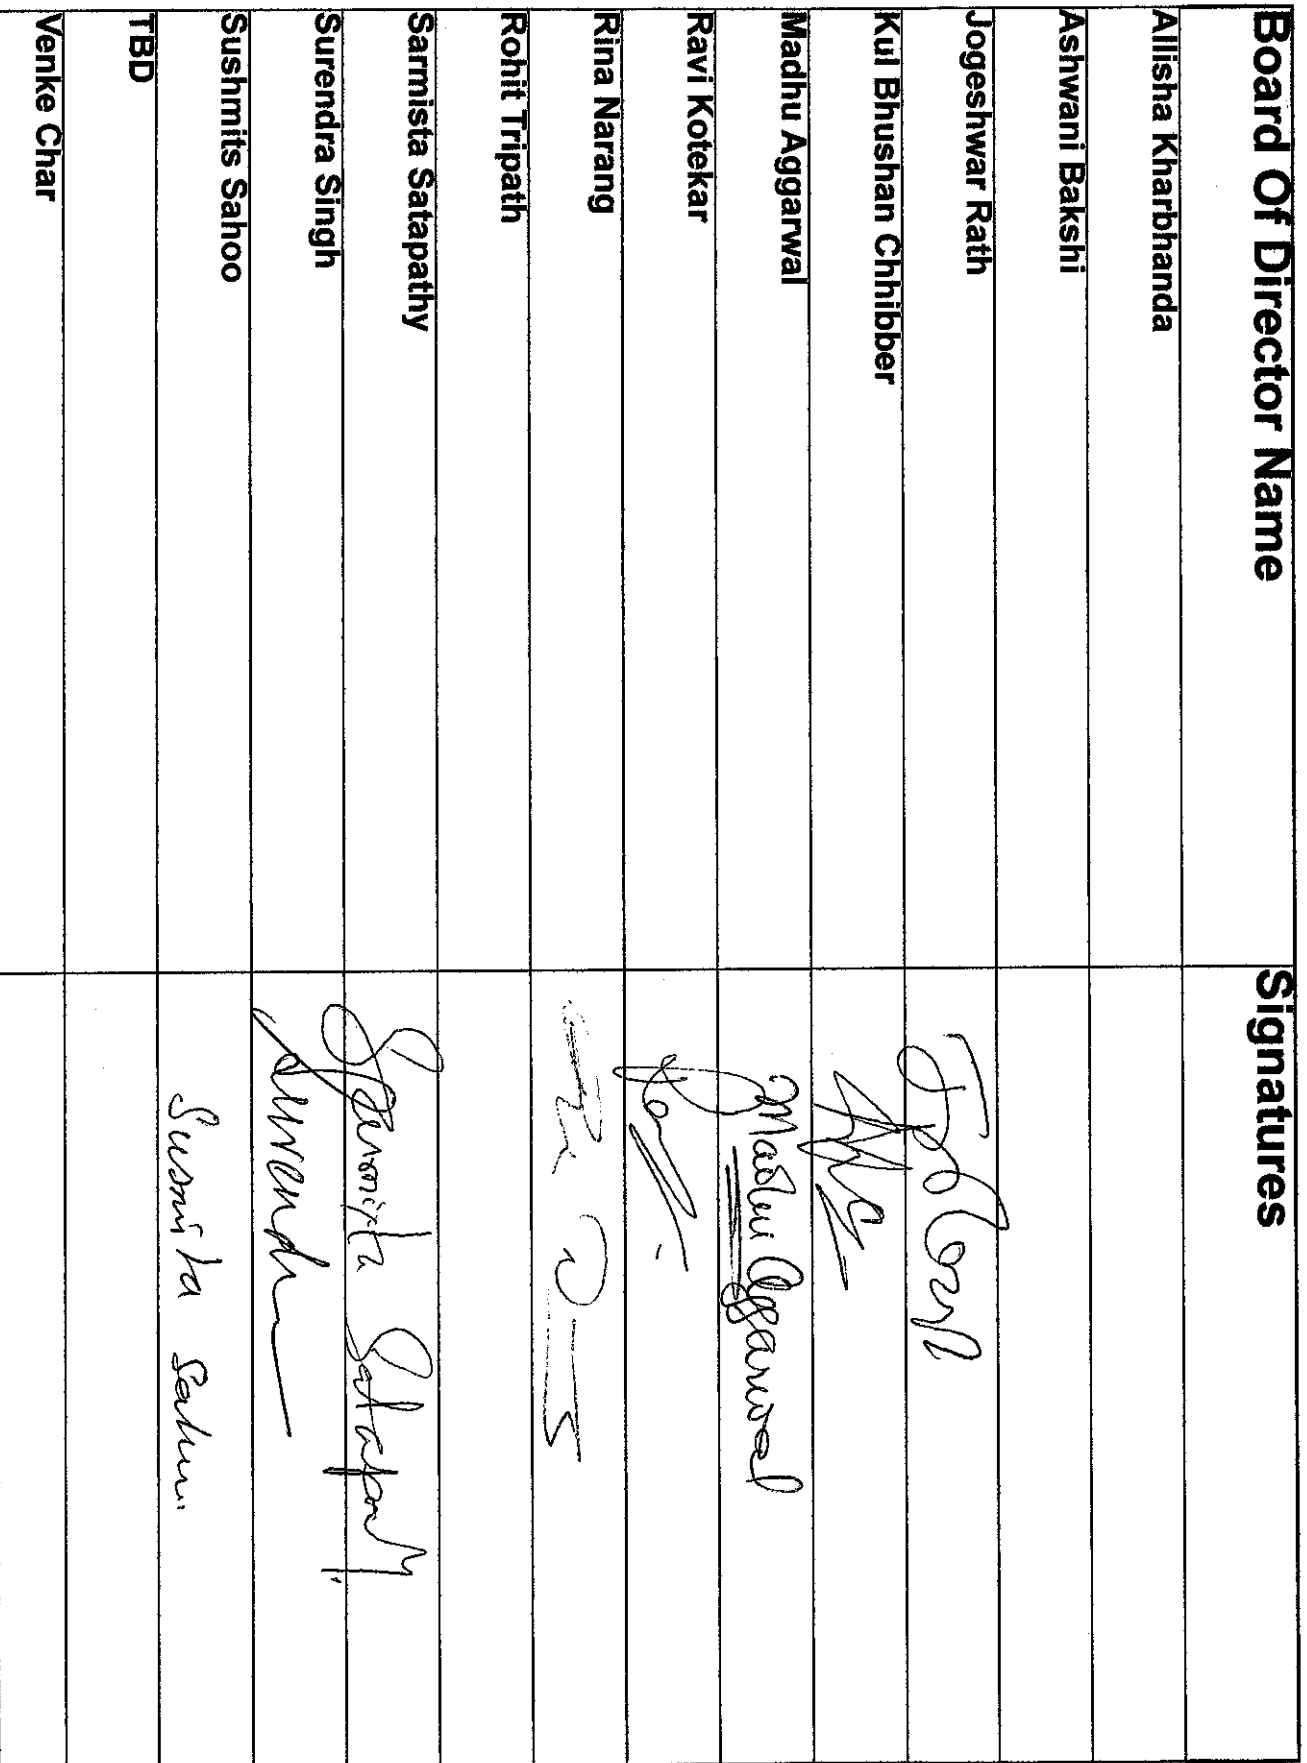 Board Of Director Name Signatures
Allisha Kharbhanda
Ashwani Bakshi
Jogeshwar Rath
Kul Bhushan Chhibber
Madhu Aggarwal Madhu Aggarwal
Ravi Kotekar
Rina Narang
Rohit Tripath
Sarmista Satapathy Sarmista Satapathy
Surendra Singh Surendra
Sushmits Sahoo Susmita Sahoo
TBD
Venke Char